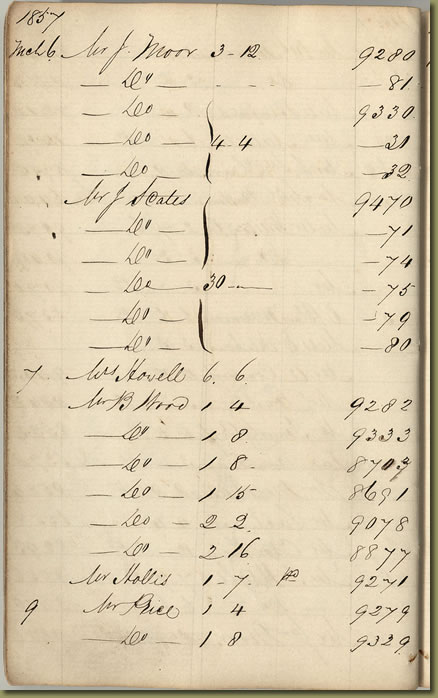 1857
Mch 6. Mr J. Moor 3-12 9280
— Do — - - — 81
— Do 9330
— Do — 4-4 — 31
— Do — 32
Mr J Scates 9470
— Do — — 71
— Do — — 74
— Do — 30 — — 75
— Do — — 79
— Do — — 80
7 Mrs Hovell 6. 6.
Mr B Wood 1 4 9282
— Do — 1 8. 9333
— Do — 1 8 - 8707
— Do — 1 15 8691
— Do — 2 2. 9078
— Do — 2 16 8877
Mr Hollis 1-7. 9271
9 Mr Price 1 4 9279
— Do — 1 8 9329